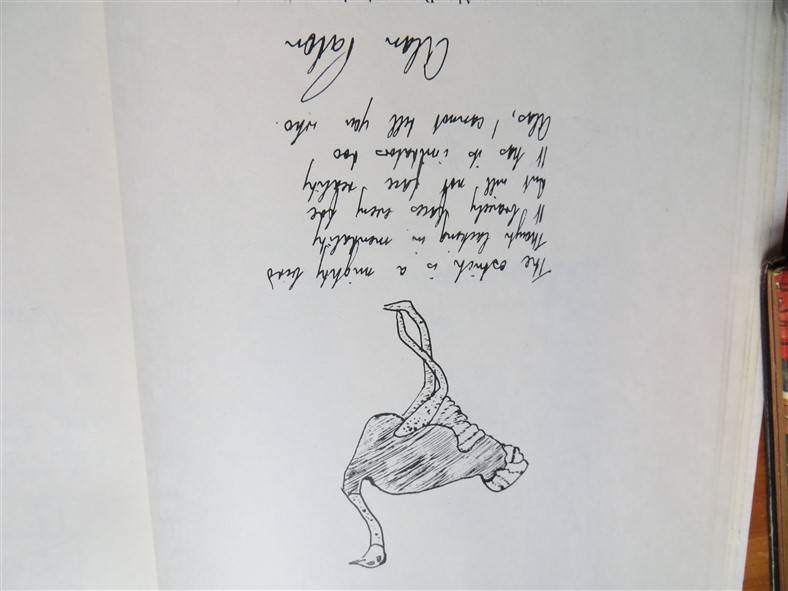 The ostrich is a mighty bird
Though lacking in mentality
It bravely faces every foe
But will not face reality
It has its imitators too
Alas, I cannot tell you who.
Alan Paton